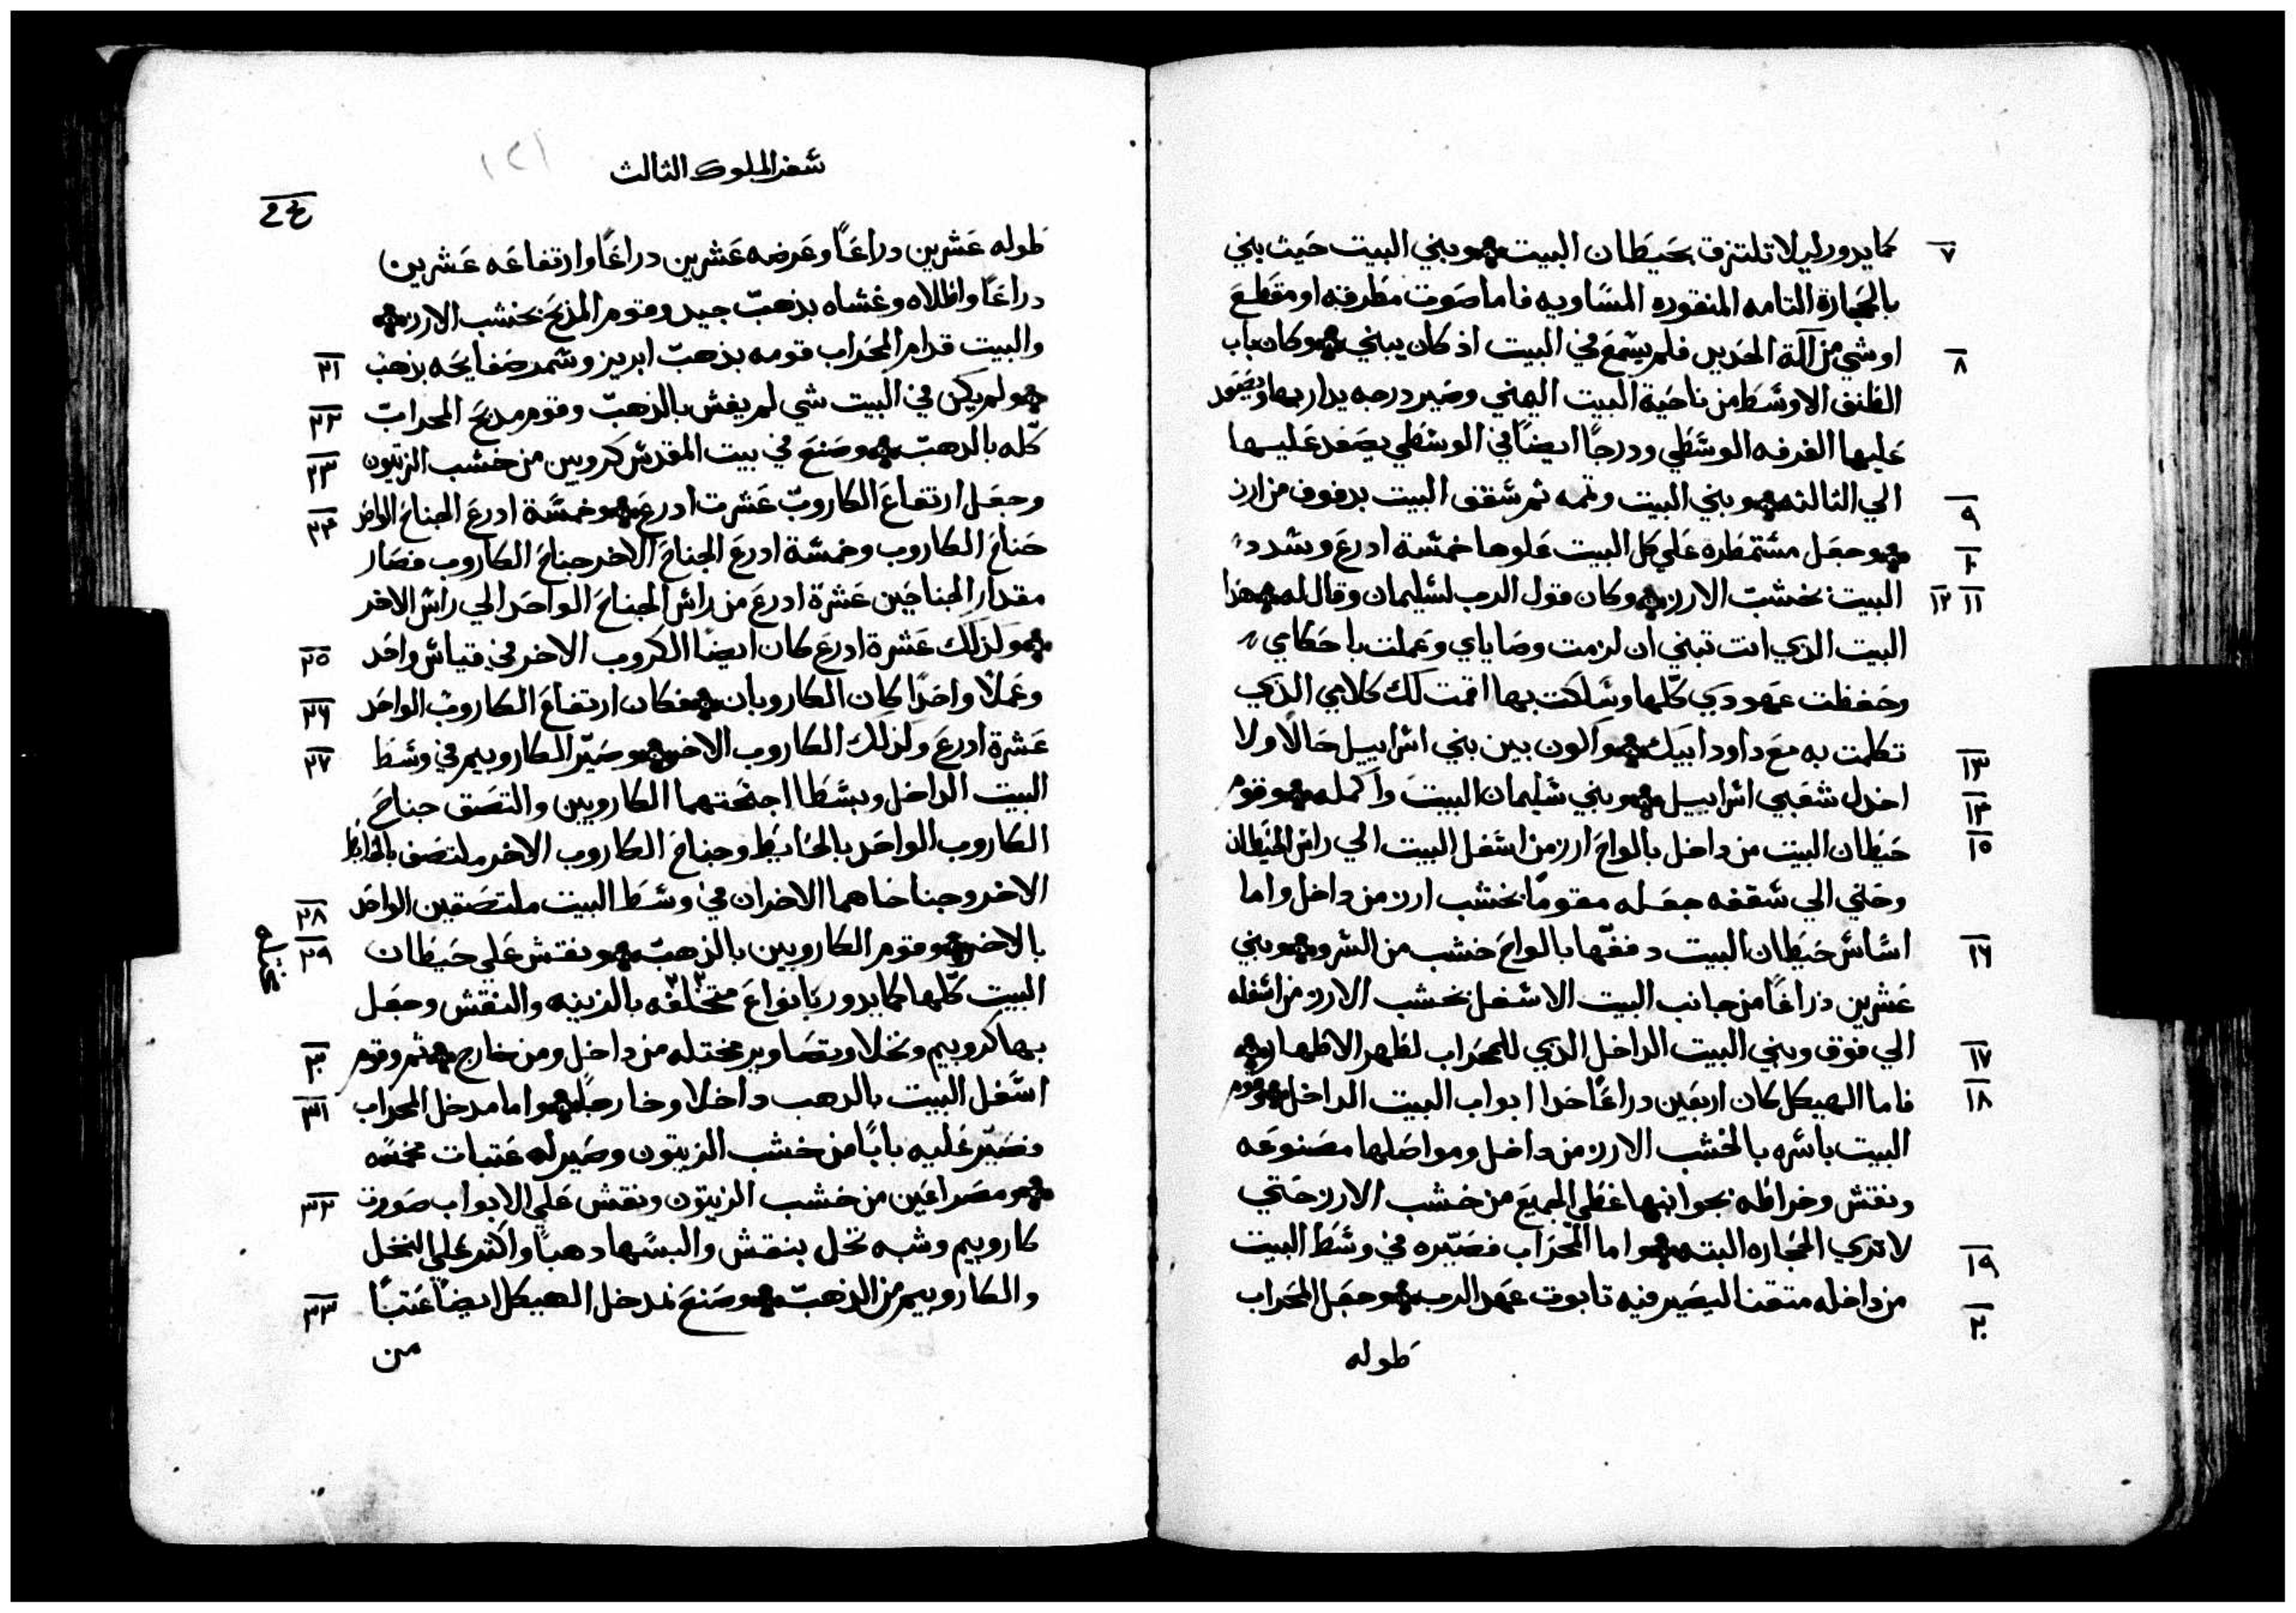 ٧ كما يدور ليلا تلتزق بحيطان البيت وبني البيت حيث بني
بالحجارة التامه المنقوره المساويه فاما صوت مطرقه او مقطع
٨ او شي من آلة الحديد فلم يسمع في البيت اذ كان يبني وكان باب
الطنف الاوسط من ناحية البيت اليمني وصير درجه يدار بها ويصعد
عليها الغرفه الوسطي ودرجًا ايضًا في الوسطي يصعد عليها
٩ الي الثالثه وبني البيت وتمه ثم سقف البيت بدفوف من ارز
١٠ وجعل مشتمطره علي كل البيت علوها خمسة ادرع وشدد
١١ ١٢ البيت بخشب الارز وكان قول الرب لسليمان وقال له هذا
البيت الذي انت تبني ان لزمت وصاياي وعملت باحكامي
وحفظت عهودي كلها وسلكت بها اقمت لك كلامي الذي
١٣ تكلمت به مع داود ابيك واكون بين بني اسراييل حالًا ولا
١٤ اخدل شعبي اسراييل وبني سليمان البيت واكمله وقوم
١٥ حيطان البيت من داخل بالواح ارز من اسفل البيت الي راس الحيطان
وحتي الي سقفه جعله مقومًا بخشب ارز من داخل واما
١٦ اساس حيطان البيت دففها بالواح خشب من السرو وبني
عشرين ذراعًا من جانب البيت الاسفل بخشب الارز من اسفله
١٧ الي فوق وبني البيت الداخل الذي للمحراب لطهر الاطهار
١٨ فاما الهيكل كان اربعين دراعًا حدا ابواب البيت الداخل وقوم
البيت باسره بالخشب الارز من داخل ومواصلها مصنوعه
ونقش وخراطه بجوانبها غطي الجميع من خشب الارز حتي
١٩ لا تري الحجاره البته واما المحراب فصيره في وسط البيت
٢٠ من داخله متقنا ليصير فيه تابوت عهد الرب وجعل المحراب
طوله
سفر الملوك الثالث
١٢١
طوله عشرين دراعًا وعرضه عشرين دراعًا وارتفاعه عشرين
دراعًا واطلاه وغشاه بذهب جيد وقوم المذبح بخشب الارز
٢١ والبيت قدام المحراب قومه بذهب ابريز وسمر صفايحه بذهب
٢٢ ولم يكن في البيت شي لم يغش بالذهب وقوم مدبح المحراب
٢٣ كله بالدهب وصنع في بيت المقدس كروبين من خشب الزيتون
٢٤ وجعل ارتفاع الكاروب عشرت ادرع وخمسة ادرع الجناح الواحد
جناح الكاروب وخمسة ادرع الجناح الاخر جناح الكاروب فصار
مقدار الجناحين عشرة ادرع من راس الجناح الواحد الي راس الاخر
٢٥ ولذلك عشرة ادرع كان ايضًا الكروب الاخر في قياس واحد
٢٦ وعملًا واحدًا كان الكاروبان فكان ارتفاع الكاروب الواحد
٢٧ عشرة ادرع ولذلك الكاروب الاخر وصير الكاروبيم في وسط
البيت الداخل وبسطا اجنحتهما الكاروبين والتصق جناح
الكاروب الواحد بالحايط وجناح الكاروب الاخر ملتصق بالحايط
٢٨ الاخر وجناحاهما الاخران في وسط البيت ملتصقين الواحد
٢٩ بالاخر وقوم الكاروبين بالذهب ونقش علي حيطان
البيت كلها كما يدور بانواع مختلفه بالزينه والنقش وجعل
٣٠ بها كروبيم ونخلا وتصاوير مختله من داخل ومن خارج ثم وقوم
٣١ اسفل البيت بالدهب داخلا وخارجًا واما مدخل المحراب
فصير عليه بابًا من خشب الزيتون وصير له عتبات مخمسه
٣٢ ومصراعين من خشب الزيتون ونقش علي الابواب صورت
كاروبيم وشبه نخل بنقش والبسها دهبًا واكثر علي النخل
٣٣ والكاروبيم من الذهب وصنع لمدخل الهيكل ايضًا عتبًا
من